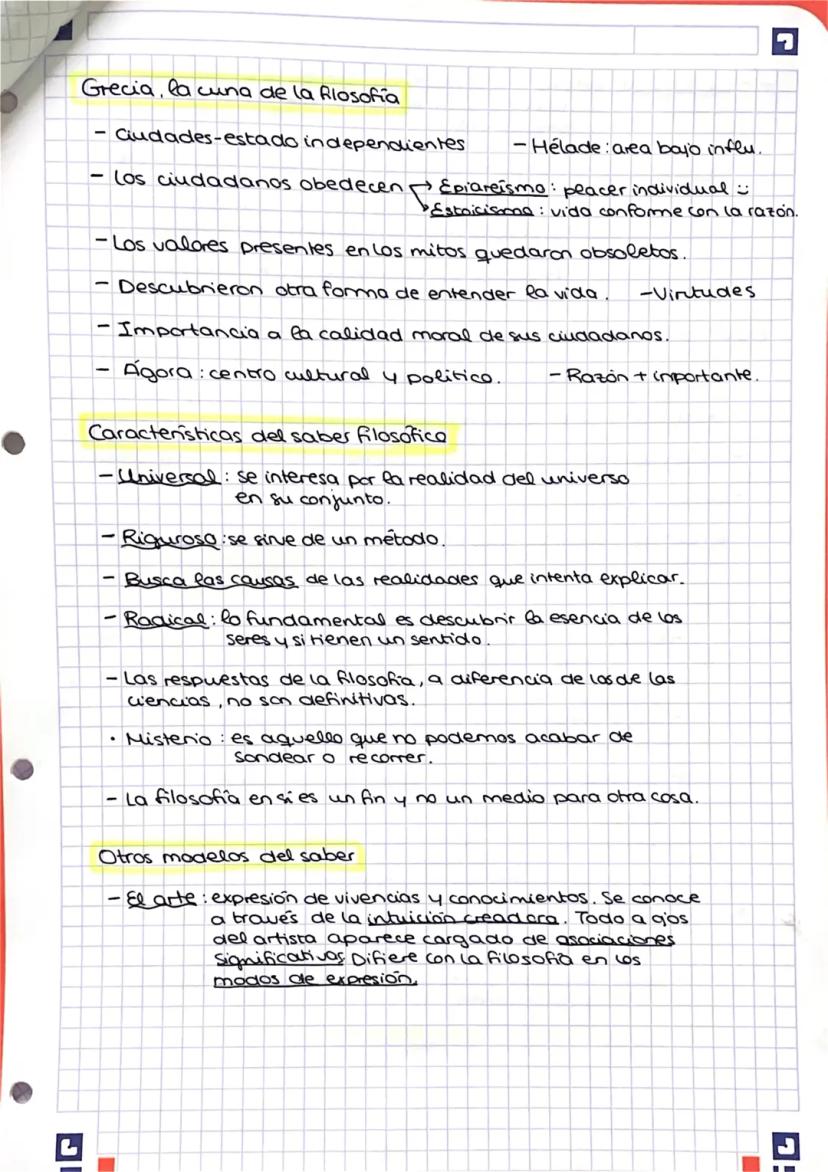 Grecia, la cuna de la filosofía
- Ciudades-estado independientes - Hélade: area bajo influ.
- Los ciudadanos obedecen → Epicureísmo: peacer individual :)
→ Estoicismo: vida conforme con la razón.
- Los valores presentes en los mitos quedaron obsoletos.
- Descubrieron otra forma de entender la vida. - Virtudes
- Importancia a la calidad moral de sus ciudadanos.
- Ágora: centro cultural y politico. - Razón + importante.
Características del saber filosófico
- Universal: se interesa por la realidad del universo
en su conjunto.
- Riguroso: se sirve de un método.
- Busca las causas de las realidades que intenta explicar.
- Radical: lo fundamental es descubrir la esencia de los
seres y si tienen un sentido.
- Las respuestas de la filosofía, a diferencia de las de las
ciencias, no son definitivas.
• Misterio: es aquello que no podemos acabar de
sondear o recorrer.
- La filosofía en si es un fin y no un medio para otra cosa.
Otros modelos del saber
- El arte: expresión de vivencias y conocimientos. Se conoce
a través de la intuición creadora. Todo a ojos
del artista aparece cargado de asociaciones
significativas. Difiere con la filosofía en los
modos de expresión.